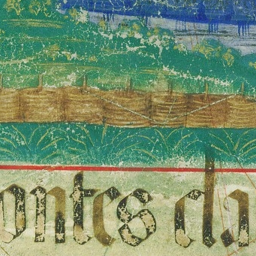 ontes da